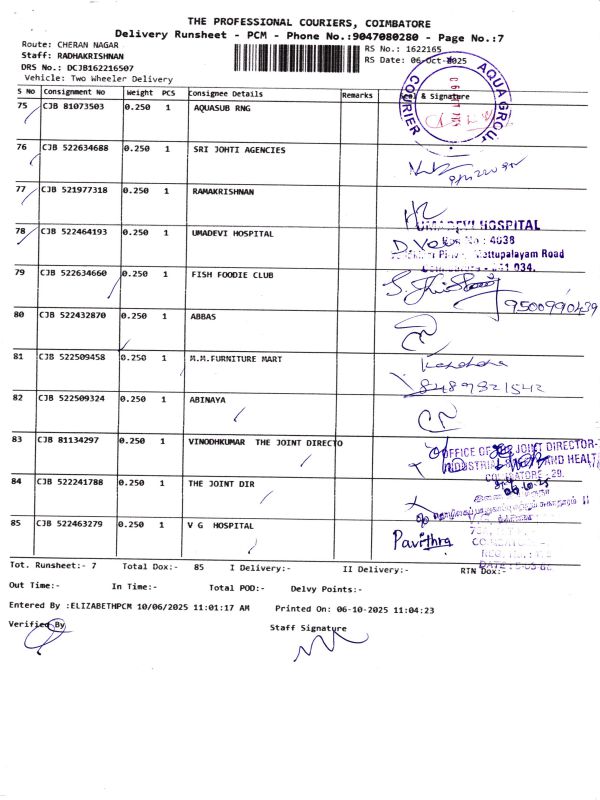 THE PROFESSIONAL COURIERS, COIMBATORE
Delivery Runsheet - PCM - Phone No.:9047080280 - Page No.:7
Route: CHERAN NAGAR
RS No.: 1622165
Staff: RADHAKRISHNAN
RS Date: 06-Oct-2025
DRS No.: DCJB162216507
Vehicle: Two Wheeler Delivery
S No Consignment No Weight PCS Consignee Details Remarks & Signature
AQUA GROUP
COURIER
75 CJB 81073503 0.250 1 AQUASUB RNG
76 CJB 522634688 0.250 1 SRI JOHTI AGENCIES
77 CJB 521977318 0.250 1 RAMAKRISHNAN
78 CJB 522464193 0.250 1 UMADEVI HOSPITAL
UMADEVI HOSPITAL
No : 4638
Mettupalayam Road
79 CJB 522634660 0.250 1 FISH FOODIE CLUB
9500990439
80 CJB 522432870 0.250 1 ABBAS
81 CJB 522509458 0.250 1 M.M.FURNITURE MART
8489821542
82 CJB 522509324 0.250 1 ABINAYA
83 CJB 81134297 0.250 1 VINODHKUMAR THE JOINT DIRECTO
OFFICE OF THE JOINT DIRECTOR-
INDUSTRIAL AND HEALT
COIMBATORE - 29.
84 CJB 522241788 0.250 1 THE JOINT DIR
85 CJB 522463279 0.250 1 V G HOSPITAL
Pavithra
Tot. Runsheet:- 7 Total Dox:- 85 I Delivery:- II Delivery:- RTN Dox:-
Out Time:- In Time:- Total POD:- Delvy Points:-
Entered By :ELIZABETHPCM 10/06/2025 11:01:17 AM Printed On: 06-10-2025 11:04:23
Verified By
Staff Signature